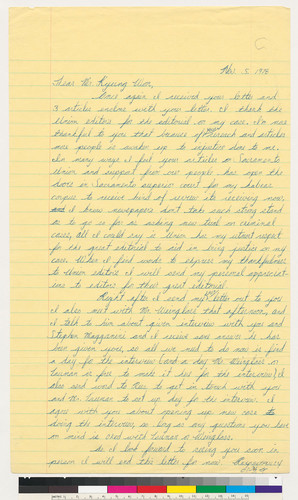 Nov. 5, 1978
Dear Mr. Kyung Won,
Once again I received your letter and
3 articles enclose with your letter. I thank the
Union editors for the editorial on my case. I'm more
thankful to you that because of your research and articles
more people is awaken up to injustice done to me.
In many ways I feel your articles in Sacramento
Union and support from our people has open the
door in Sacramento superior court for my habeas
corpus to receive kind of service its receiving now,
and I know newspapers don't take such strong stand
as to go as far as asking new trial in criminal
cases, all I could say is Union has my utmost respect
for this great editorial to aid in bring justice on my
case. When I find words to express my thankfulness
to Union editors I will send my personal appreciat-
ions to editors for their great editorial.
Right after I send my letter out to you
I also met with Mr. Weinglass that afternoon, and
I talk to him about given interview with you and
Stephen Magagnini and I receive same answer he has
been given you, so all we need to do now is find
a day for the interview (and a day Mr. Weinglass or
Tanner is free to make it day for the interview) I
also send word to him to get in touch with you
and Mr. Tanner to set up day for the interview. I
agree with you about opening up new case
during the interview, as long as any questions you have
in mind is oked with Tanner or Weinglass.
As I look forward to seeing you soon in
person I will end this letter for now. Respectfully